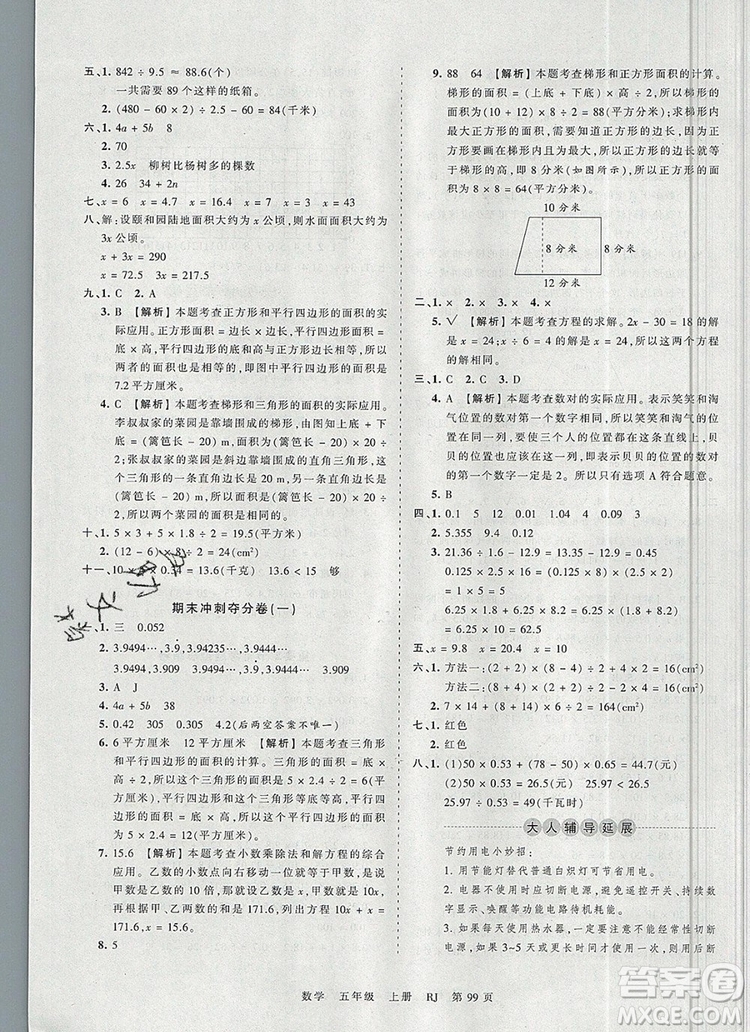 五、1. 842 ÷ 9.5 ≈ 88.6(个)
一共需要 89 个这样的纸箱。
2. (480 - 60 × 2) ÷ 2.5 - 60 = 84(千米)
六、1. 4a + 5b  8
2. 70
3. 2.5x  柳树比杨树多的棵数
4. 26  34 + 2n
七、x = 6  x = 4.7  x = 16.4  x = 7  x = 3  x = 43
八、解：设颐和园陆地面积大约为 x 公顷，则水面面积大约为
3x 公顷。
x + 3x = 290
x = 72.5  3x = 217.5
九、1. C  2. A
3. B 【解析】本题考查正方形和平行四边形的面积的实
际应用。正方形面积 = 边长 × 边长，平行四边形的面
积 = 底 × 高，平行四边形的底和高就是边长，所以
两者的面积是相同的。即图中平行四边形的面积是
7.2 平方厘米。
4. C 【解析】本题考查梯形和三角形的面积的实际应用。
李叔叔家的菜园是靠墙围成的梯形，由图知上底 + 下
底 = (篱笆长 - 20) m，面积是(篱笆长 - 20) × 20 ÷
2；张叔叔家的菜园是斜边靠墙围成的直角三角形，这
个三角形的一条直角边长是 20 m，则另一条直角边长
是(篱笆长 - 20) m，面积是(篱笆长 - 20) × 20 ÷ 2。
所以两个菜园的面积是相同的。
十、1. 5 × 3 + 5 × (3 - 1.2) ÷ 2 = 19.5(平方米)
2. (12 - 6) × 8 ÷ 2 = 24(平方厘米)
期末冲刺夺分卷(一)
一、1. 三  0.052
2. 3.9494…  3.9̇  3.94235…  3.9444…
3.9494…  3.9444…  3.94235…  3.909
3. A  J
4. 4a + 5b  38
5. 0.42  305  0.305  4.2(后两空答案不唯一)
6. 6 平方厘米  12 平方厘米 【解析】本题考查三角形
和平行四边形的面积的计算。三角形的面积 = 底 × 高
÷ 2，所以这个三角形的面积是 5 × 2.4 ÷ 2 = 6(平方
厘米)。平行四边形的面积 = 底 × 高，所以与这个三
角形等底等高的平行四边形的面积是 5 × 2.4 = 12(平
方厘米)。
7. 15.6 【解析】本题考查小数乘除法和解方程的综合
应用。乙数的小数点向右移动一位就等于甲数，就是说
甲数是乙数的 10 倍，设乙数为 x，则甲数就是 10x，
根据甲、乙两数的和为 171.6，列方程得 x + 10x =
171.6，x = 15.6。
8. 5
9. 88  64 【解析】本题考查梯形和正方形面积的计算。
梯形的面积 = (上底 + 下底) × 高 ÷ 2，所以梯形的面
积为(10 + 12) × 8 ÷ 2 = 88(平方分米)。求从梯形中剪
最大正方形的面积，需要知道正方形的边长，因为是从
梯形里面剪，要想画最大的正方形，正方形的边长就是
梯形的高，即 8 分米(如图所示)，所以面积为 8 × 8 =
64(平方分米)。
10 分米
8 分米
8 分米
12 分米
二、1. ×  2. ×  3. ×  4. ×
5. √ 【解析】本题考查方程的求解。2x - 30 = 18 的解
是 x = 24，x ÷ 4 = 6 的解是 x = 24，所以这两个方程
的解相同。
三、1. C  2. C  3. D
4. A 【解析】本题考查数对的实际应用。表示笑笑和淘
气位置的数对第一个数字相同，所以笑笑和淘气的位
置在同一列，要使三个人的位置都在这条直线上，贝贝
的位置也一定要在这一列上，也就是说表示贝贝的位
置的数对的第一个数字一定是 2。所以只有选项 A 符合题意。
5. B
四、1. 0.1  5  12  0.01  1.04  0.09  3
2. 5.355  4.9  0.12
3. 21.36 - 12.6 ÷ 1.5 - 1.36 = 21.36 - 1.36 - 12.6 ÷
1.5 = 20 - 8.4 = 11.6
0.25 × 1.6 + 1.6 × 0.75 = (0.25 + 0.75) × 1.6
= 1 × 1.6 = 1.6
0.25 × 5 × 6.45 × 4 = (0.25 × 4) × (5 × 6.45)
= 1 × 32.25 = 32.25
五、x = 9.8  x = 20.4  x = 10
六、1. 方法一：(2 + 2) × (8 - 4) ÷ 2 + 2 × 4 = 16(cm²)
方法二：(2 + 2 + 4) × 8 ÷ 2 - 4 × 8 ÷ 2 = 16(cm²)
2. 7 × 14 + (8 + 14) × 6 ÷ 2 = 164(cm²)
七、1. 红色
2. 红色
八、1. (1)50 × 0.53 + (78 - 50) × 0.55 = 41.9(元)
50 × 0.53 + (100 - 66 - 50) × 0.55 = 44.7(元)
(2)50 × 0.53 = 26.5(元)  25.97 < 26.5
25.97 ÷ 0.53 = 49(千瓦时)
大人辅导延展
节约用电小妙招：
1. 用节能灯替代普通白炽灯可节省用电。
2. 电器不使用时应切断电源，避免遥控开关、持续数字
显示、唤醒等功能电路待机耗能。
3. 如果每天使用热水器，一天内尽可能不要经常性切断
电源，如果 3~5 天或更长时间才使用一次，则应断电
数学  五年级  上册  RJ  第 99 页
答案
MXQE.COM